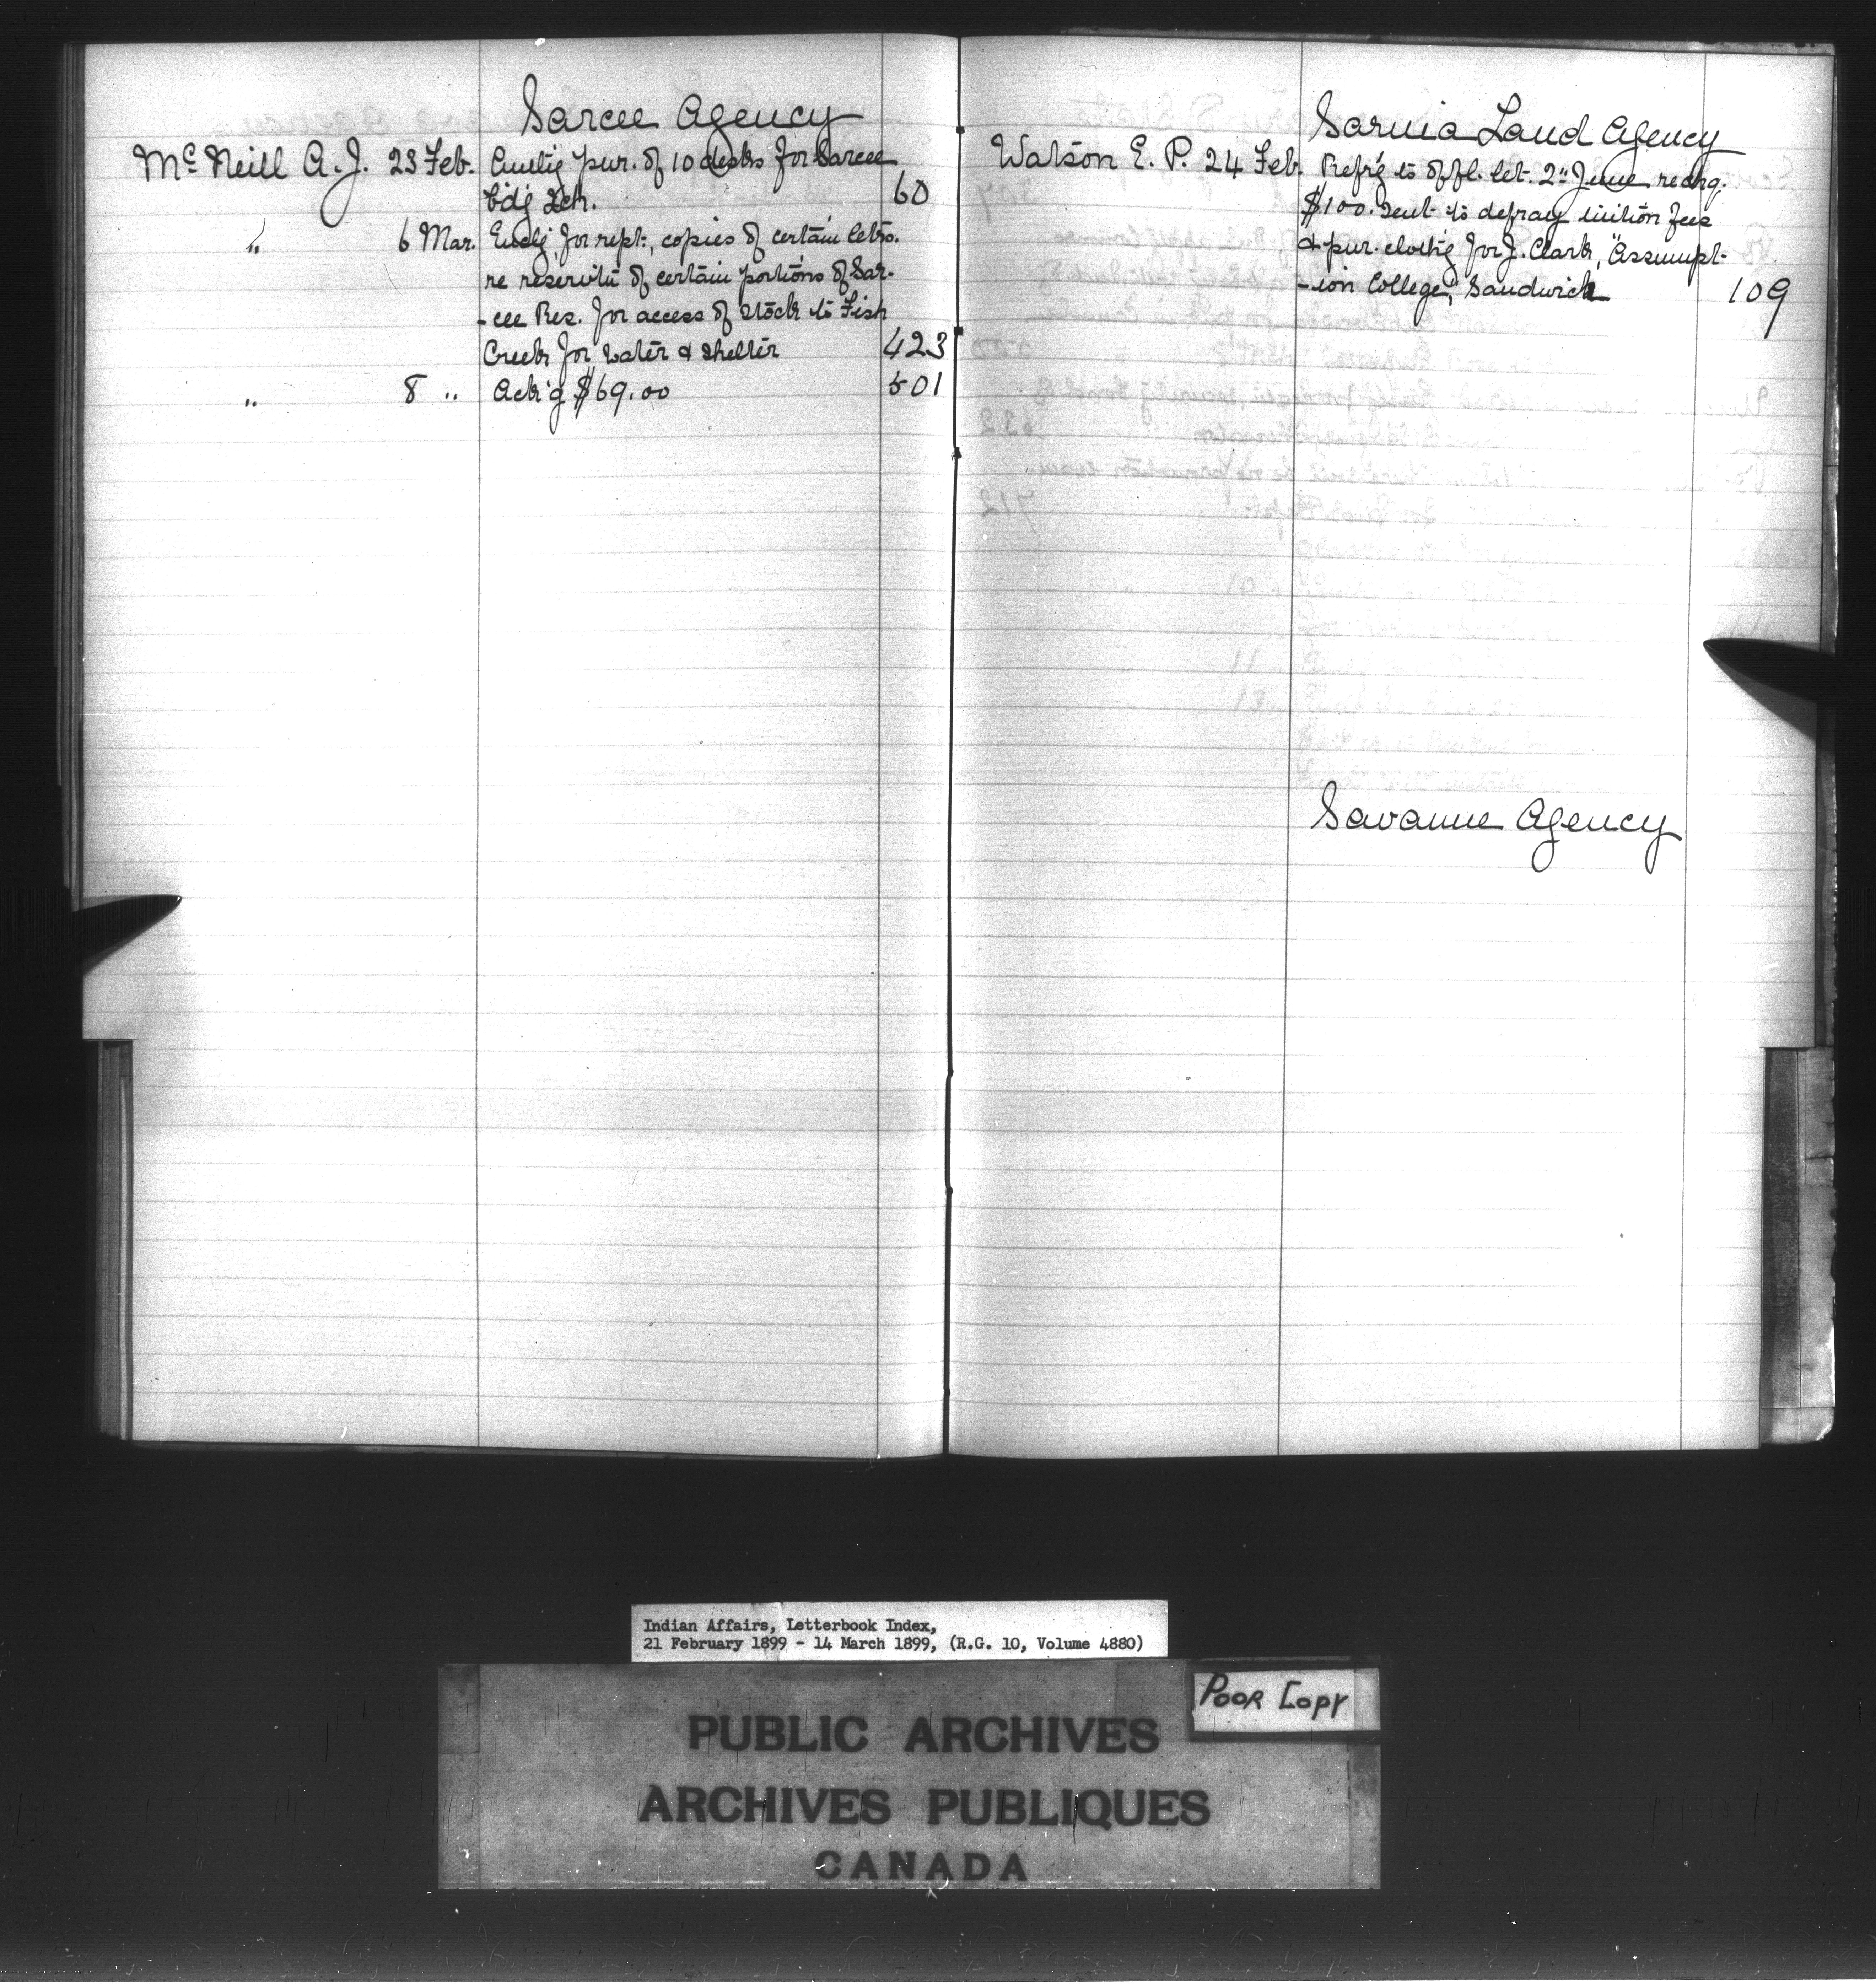 Sarcee Agency
McNeill A. J. 23 Feb. Authg pur. of 10 desks for Sarcee
Bdg Sch. 60
" 6 Mar. Enclg for rept, copies of certain letrs.
re reservtn of certain portions of Sar-
-cee Res. for access of stock to Fish
Creek for water & shelter 423
" 8 " Ack'g $69.00 501
Sarnia Land Agency
Watson E. P. 24 Feb. Refr'g to offl. let. 2" June re chq.
$100. sent to defray tuition fees
& pur. clothg for J. Clark, "Assumpt-
-ion College, Sandwich 109
Savanne Agency
Indian Affairs, Letterbook Index,
21 February 1899 - 14 March 1899, (R.G. 10, Volume 4880)
POOR COPY
PUBLIC ARCHIVES
ARCHIVES PUBLIQUES
CANADA